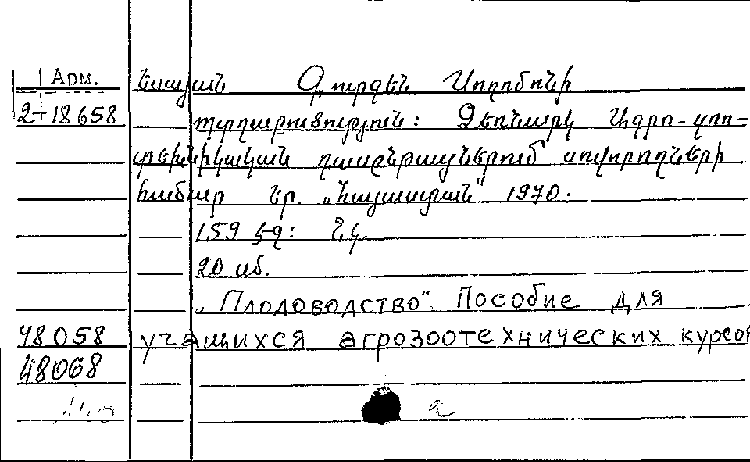 Арм. Եսայան Գուրգեն Սողոմոնի
2-18658 պտղաբուծություն: Ձեռնարկ Ագրո-զոո-
տեխնիկական դասընթացներում սովորողների
համար Եր. „Հայաստան" 1970.
159 էջ: նկ.
20 սմ.
„Плодоводство". Пособие для
48058 учащихся агрозоотехнических курсов
48068